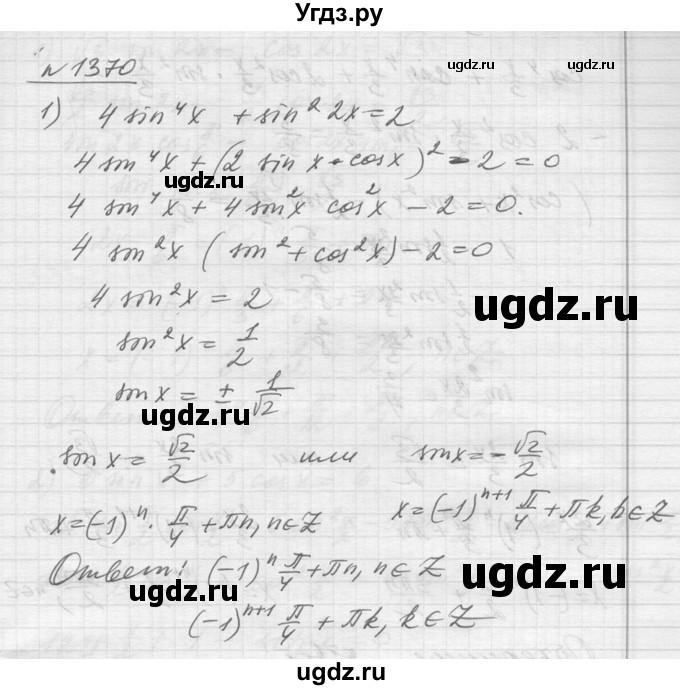 Угдз.ру
№ 1370
ugdz.ru ugdz.ru
1) 4 sin⁴x + sin² 2x = 2
4 sin⁴x + (2 sin x · cos x)² - 2 = 0
ugdz.ru
4 sin⁴x + 4 sin²x cos²x - 2 = 0.
4 sin²x ( sin² + cos²x) - 2 = 0
4 sin²x = 2
ugdz.ru
sin²x = 1/2
sin x = ± 1/√2
ugdz.ru
sin x = √2/2 или sin x = - √2/2
x = (-1)ⁿ · π/4 + πn, n ∈ Z x = (-1)ⁿ⁺¹ π/4 + πk, k ∈ Z
ugdz.ru
Ответ: (-1)ⁿ π/4 + πn, n ∈ Z
ugdz.ru
(-1)ⁿ⁺¹ π/4 + πk, k ∈ Z
ugdz.ru ugdz.ru